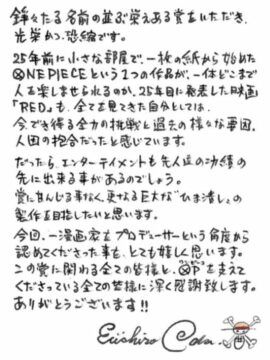 錚々たる名前の並ぶ栄えある賞をいただき、
光栄かつ、恐縮です。
25年前に小さな部屋で、一枚の紙から始めた
ONE PIECEという1つの作品が、一体どこまで
人を楽しませられるのか、25年目に発表した映画
「RED」も、全てを見てきた自分としては、
今、でき得る全力の挑戦と過去の様々な要因、
人因の抱合だったと感じています。
だったら、エンターテイメントも先人達の功績の
先に出来る事があるのでしょう。
賞に甘んじる事なく、更なる巨大な"ひま潰し"の
製作を目指したいと思います。
今回、一漫画家をプロデューサーという角度から
認めてくださった事も、とても嬉しく思います。
この賞に関わる全ての皆様と、OPを支えて
くださっている全ての皆様に深く感謝致します。
ありがとうございます!!
Eiichiro Oda.